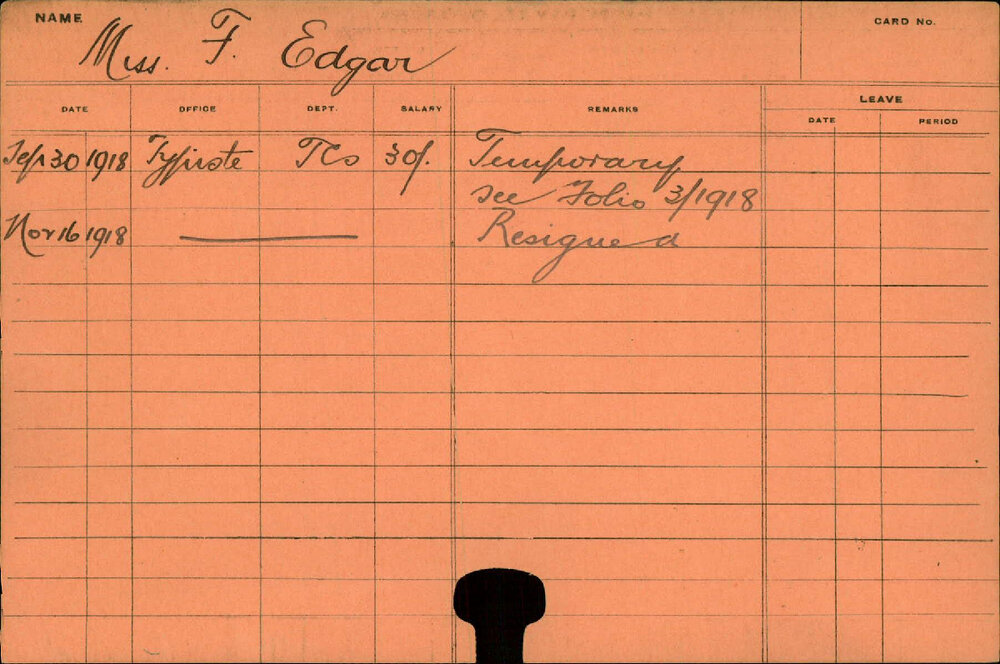 NAME
Miss. F. Edgar
CARD No.
DATE OFFICE DEPT. SALARY REMARKS LEAVE
DATE PERIOD
Sep 30 1918 Typiste TCs 30/. Temporary
see Folio 3/1918
Nov 16 1918 Resigned